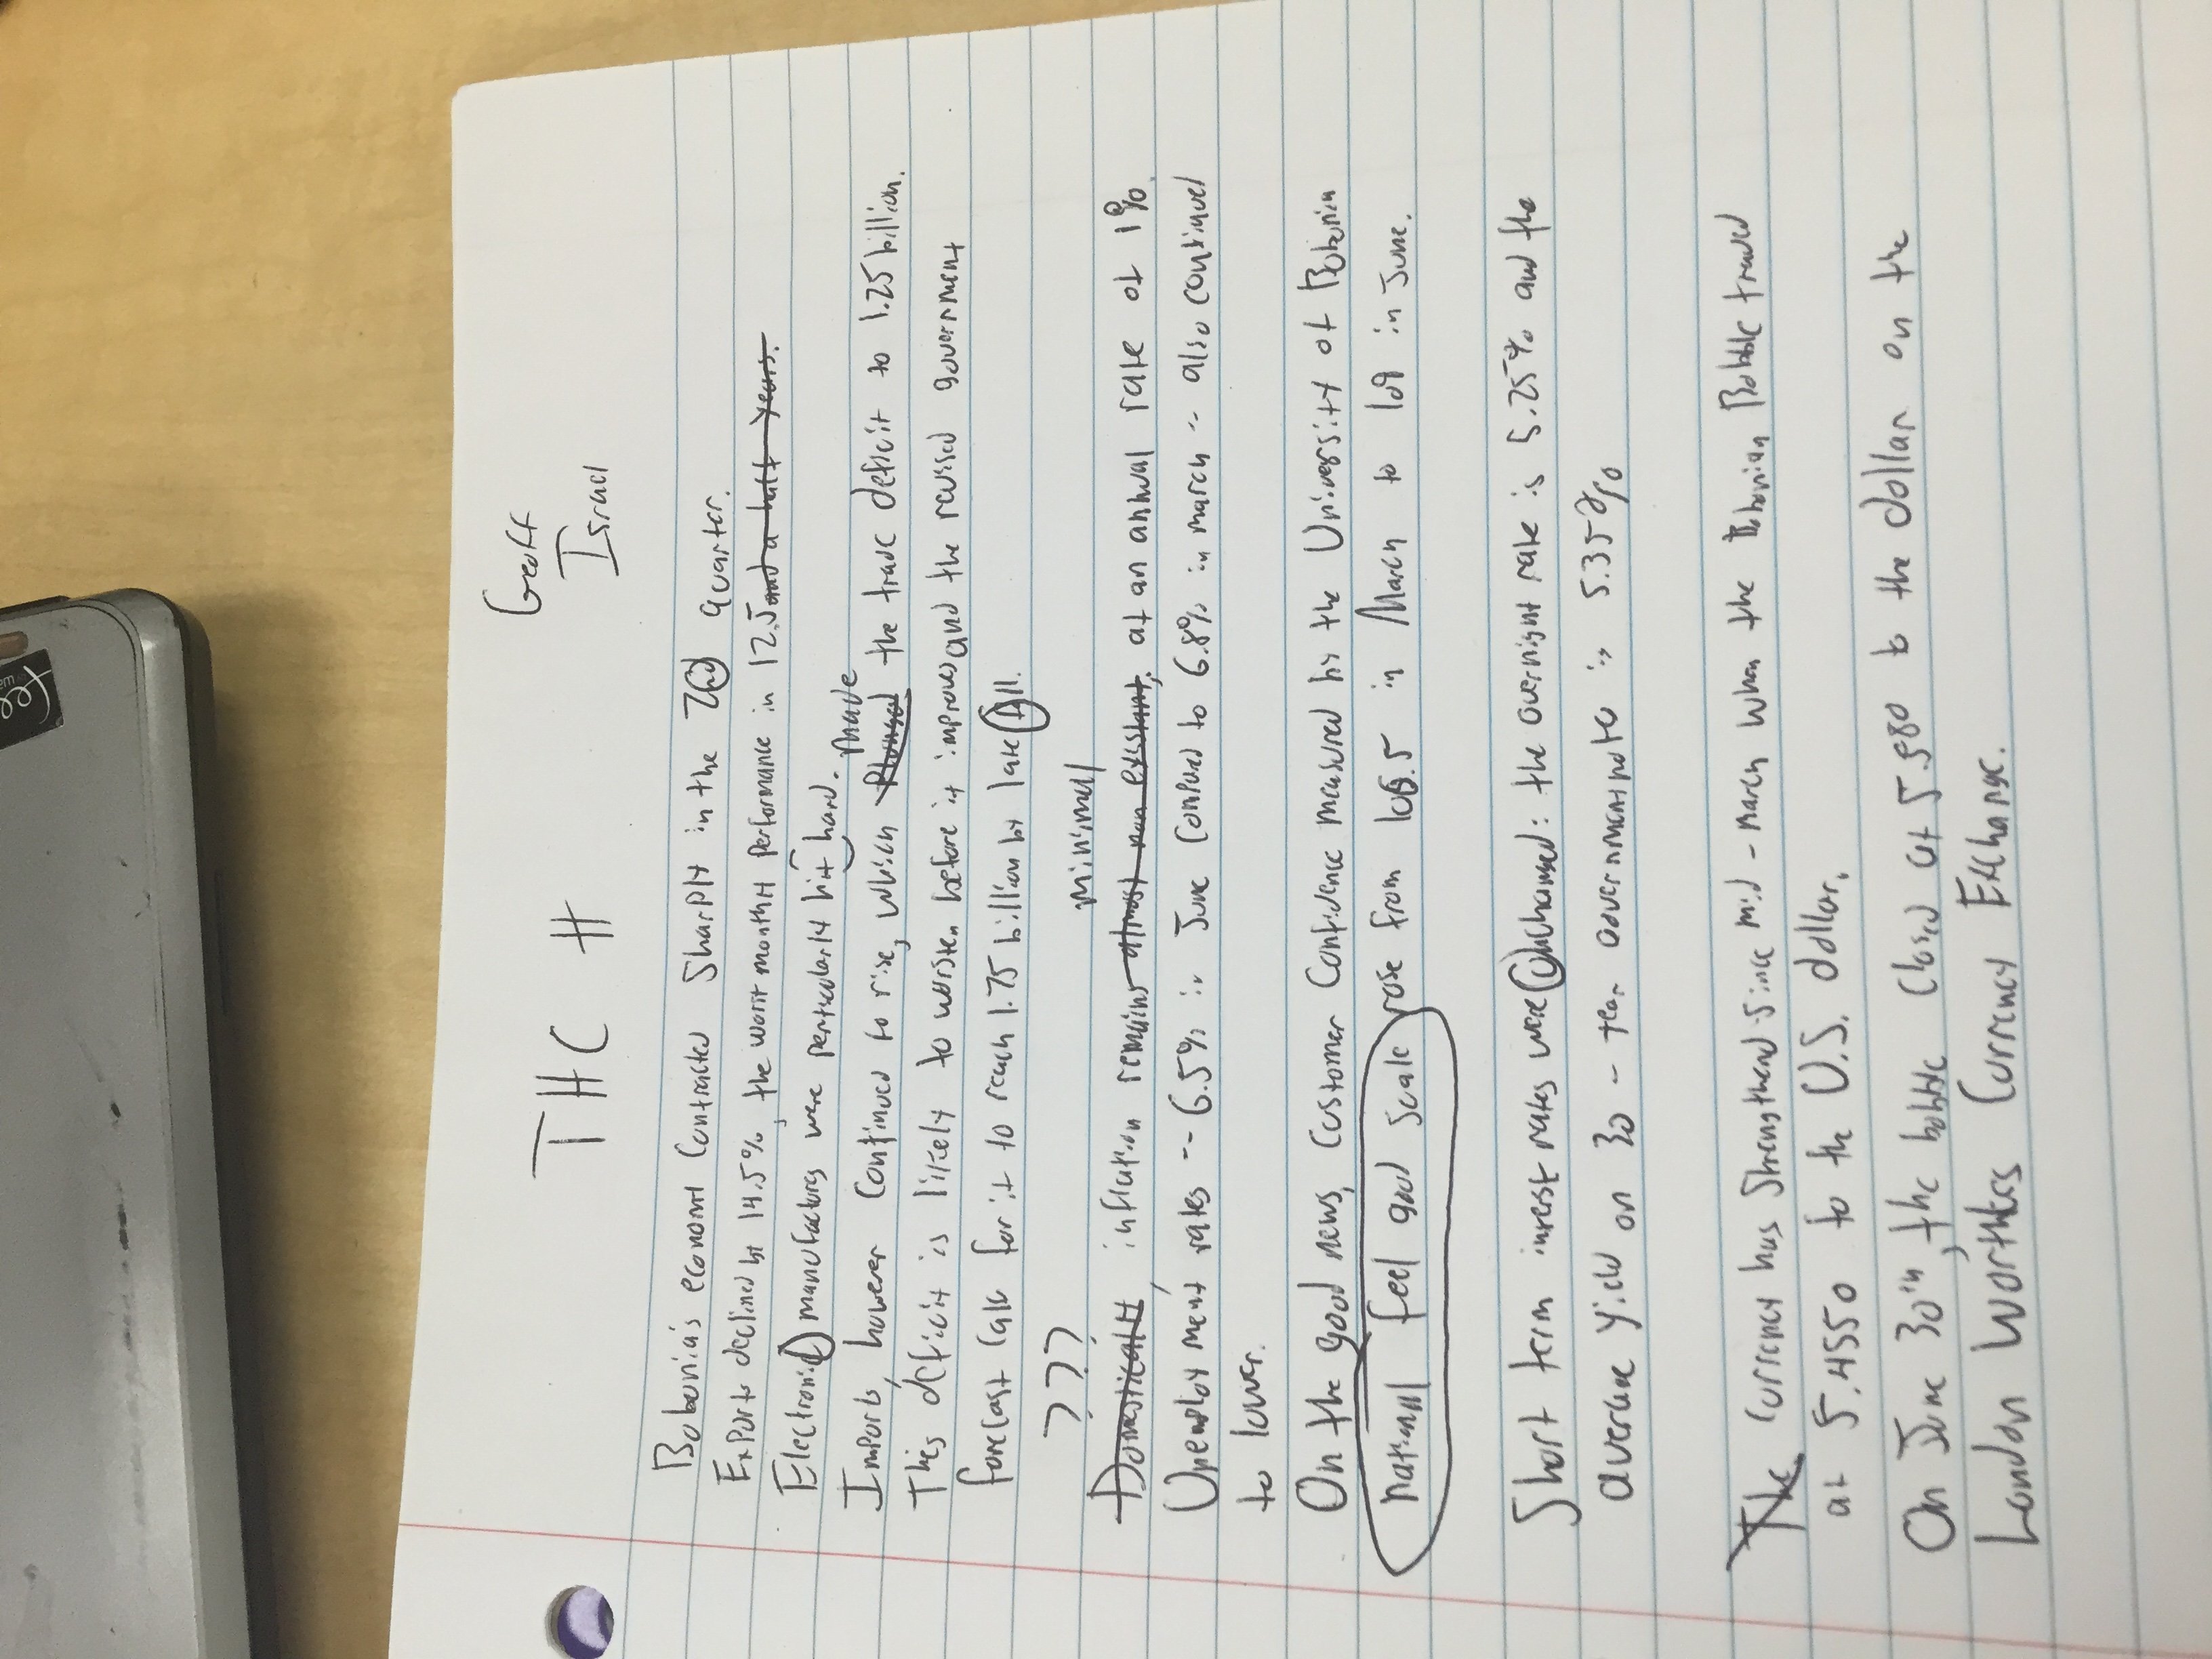 Geoff
Israel
THC H
Boboria's economy contracted sharply in the 2nd quarter.
Exports declined by 14.5%, the worst monthly performance in 12.5 and a half years.
Electronic manufactorings were perticularly hit hard.
made
Imports, however continued to rise, which plunged the trade deficit to 1.25 billion.
This deficit is likely to worsten before it improves and the revised government
forecast calls for it to reach 1.75 billion by late fall.
???
minimal
Domestically inflation remains almost non existant, at an annual rate of 1%.
Unemployment rates -- 6.5% in June compared to 6.8% in march -- also continued
to lower.
On the good news, customer confidence measured by the University of Boboria
national feel good scale rose from 106.5 in March to 109 in June.
Short term interest rates were unchanged: the overnight rate is 5.25% and the
average yield on 30-year government notes is 5.35%
The currency has strengthend since mid-march when the Boborian Bobble traded
at 5.4550 to the U.S. dollar.
On June 30th, the bobble closed at 5.580 to the dollar on the
London Worthies Currency Exchange.